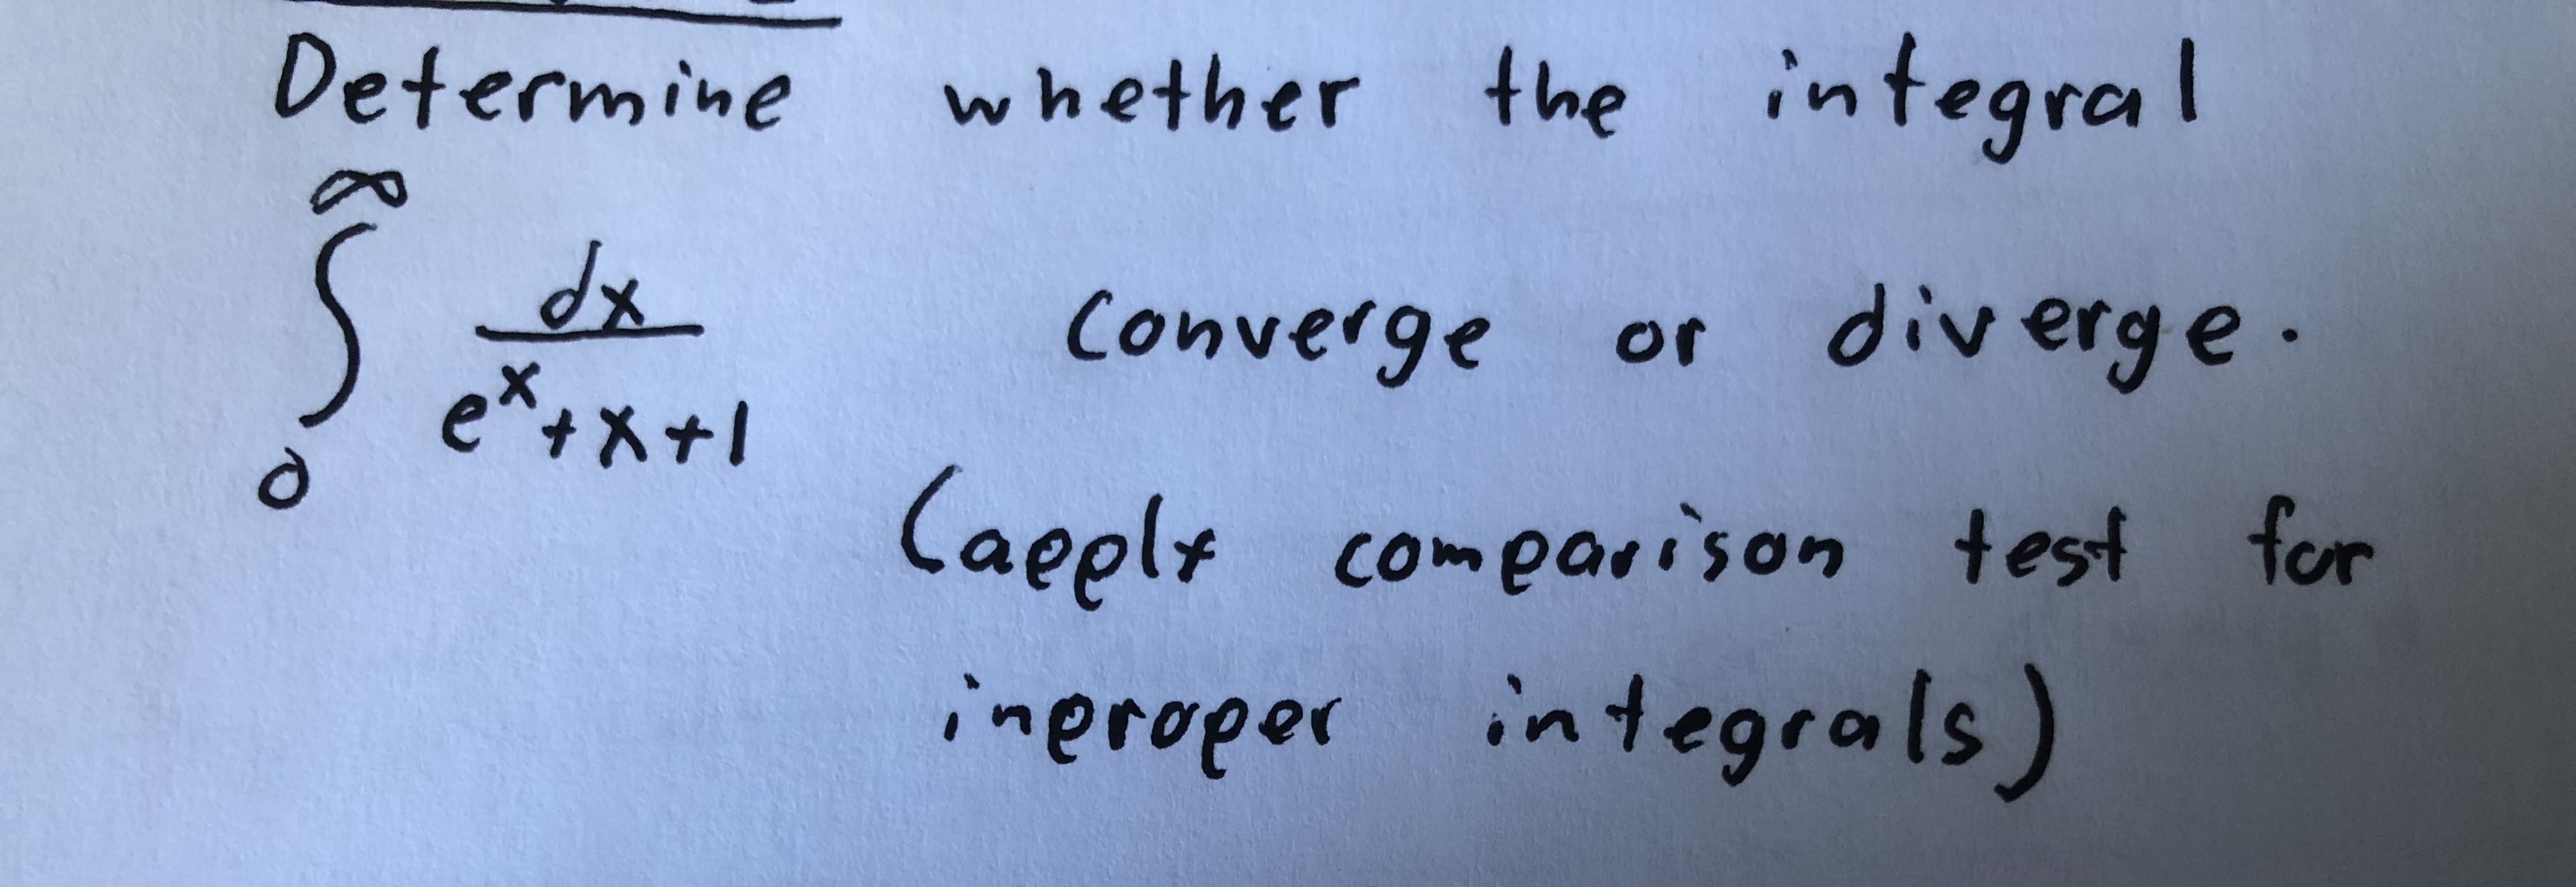 Determine whether the integral
∫₀^∞ dx/(eˣ+x+1) converge or diverge.
(apply comparison test for
inproper integrals)